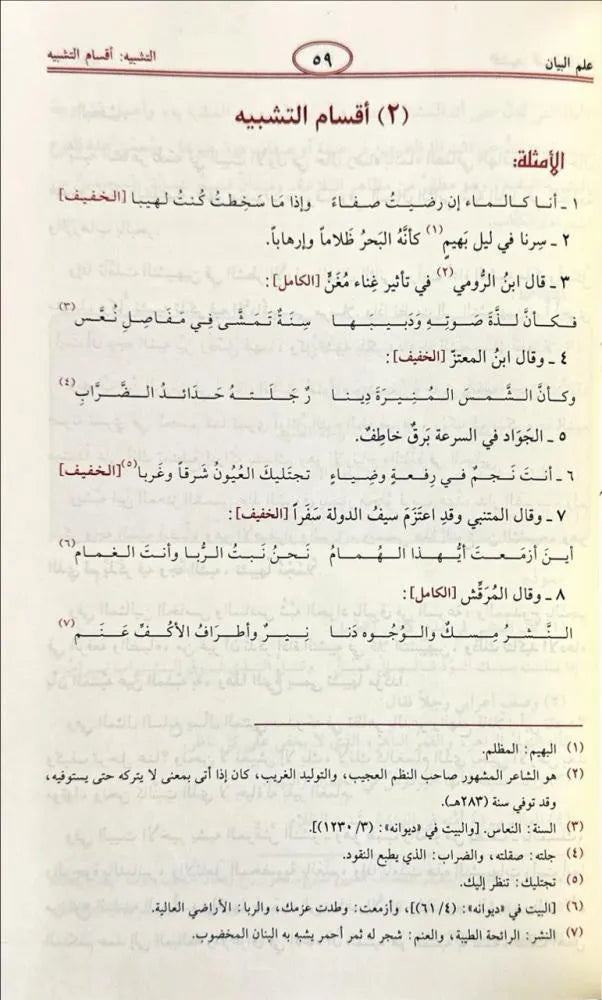 علم البيان ٥٩ التشبيه: أقسام التشبيه
(٢) أقسام التشبيه
الأمثلة:
١ ـ أنـا كـالـمـاء إن رضـيـتُ صـفـاءً وإذا مَـا سَـخِـطـتُ كُـنـتُ لـهيـبـا [الخفيف]
٢ ـ سِرنا في ليل بَهيمٍ(١) كأنَّهُ البَحرُ ظَلاماً وإرهاباً.
٣ ـ قال ابنُ الرُّومي(٢) في تأثير غِناء مُغَنٍّ [الكامل]:
فـكـأنَّ لـذَّةَ صَـوتِـهِ وَدَبِـيـبَـهـا سِـنَةٌ تَـمَـشَّـى فِـي مَـفَـاصِـلِ نُـعَّـسِ(٣)
٤ ـ وقال ابنُ المعتزّ [الخفيف]:
وكـأنَّ الـشَّـمـسَ الـمُـنِـيـرَةَ دِيـنـا رٌ جَـلَـتـهُ حَـدَائـدُ الـضَّـرَّابِ(٤)
٥ ـ الجَوَاد في السرعة بَرقٌ خاطِفٌ.
٦ ـ أنـتَ نَـجـمٌ فـي رِفـعـةٍ وضِيـاءٍ تجتَليكَ العُيُونُ شَرقاً وغَربا(٥) [الخفيف]
٧ ـ وقال المتنبي وقدِ اعتَزَمَ سيفُ الدولة سَفَراً [الخفيف]:
أيـنَ أزمَـعـتَ أيُّـهـذا الـهُـمـامُ نَـحـنُ نَـبـتُ الـرُّبـا وأنـتَ الـغَـمـام(٦)
٨ ـ وقال المُرَقِّش [الكامل]:
الـنَّـشـرُ مِـسـكٌ والـوُجُـوه دَنـا نِـيـرٌ وأطـرَافُ الأكُـفِّ عَـنَـم(٧)
(١) البهيم: المظلم.
(٢) هو الشاعر المشهور صاحب النظم العجيب، والتوليد الغريب، كان إذا أتى بمعنى لا يتركه حتى يستوفيه،
وقد توفي سنة (٢٨٣هـ).
(٣) السنة: النعاس. [والبيت في «ديوانه»: (٣/ ١٢٣٠)].
(٤) جلته: صقلته، والضراب: الذي يطبع النقود.
(٥) تجتليك: تنظر إليك.
(٦) [البيت في «ديوانه»: (٤/ ٦١)]، وأزمعت: وطدت عزمك، والربا: الأراضي العالية.
(٧) النشر: الرائحة الطيبة، والعنم: شجر له ثمر أحمر يشبه به البنان المخضوب.